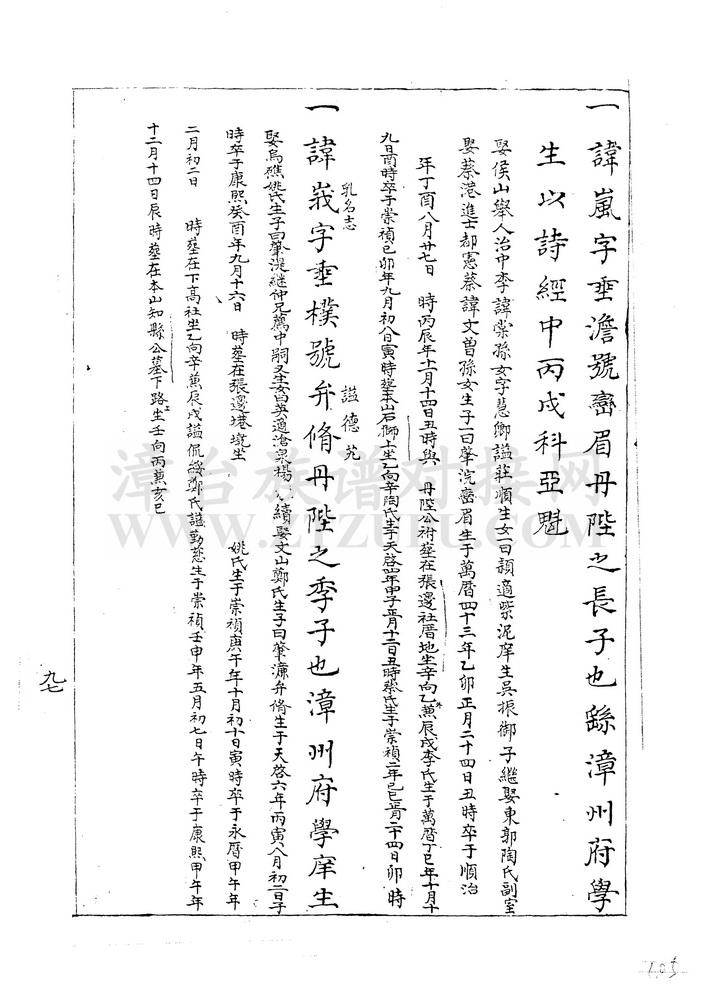 一諱嵐字垂澹號巒眉丹陛之長子也繇漳州府學
生以詩經中丙戌科亞魁
娶侯山舉人治中李諱棠孫女字慧卿謚莊順生女一曰穎適紫泥庠生吳振御子繼娶東郭陶氏副室
娶蔡港進士都憲蔡諱文曾孫女生子一曰肇浣巒眉生于萬曆四十三年乙卯正月二十四日丑時卒于順治
年丁酉八月廿七日 時丙辰年十一月十四日丑時與 丹陛公祔塟在張邊社厝地坐辛向乙兼辰戌李氏生于萬曆丁巳年十月十
九日酉時卒于崇禎己卯年九月初八日寅時塟本山石獅上坐乙向辛陶氏生于天啓四年甲子正月十二日丑時蔡氏生于崇禎二年己巳正月二十四日卯時
乳名志 謚德
一諱峩字垂樸號弁脩丹陛之季子也漳州府學庠生
娶烏礁姚氏生子曰肇湜繼仲兄萬中嗣又生女曰英適滄泉楊 續娶文山鄭氏生子曰肇濂弁脩生于天啓六年丙寅八月初二日子
時卒于康熙癸酉年九月十六日 時塟在張邊塂境坐 姚氏生于崇禎庚午年十月初十日寅時卒于永曆甲午年
二月初二日 時塟在下高社坐乙向辛兼辰戌謚侃綏鄭氏謚勤慈生于崇禎壬申年五月初七日午時卒于康熙甲午年
十二月十四日辰時塟在本山知縣公墓下路上坐壬向丙兼亥巳
九七
105
漳台族谱对接网
WWW.ZTZUPU.COM